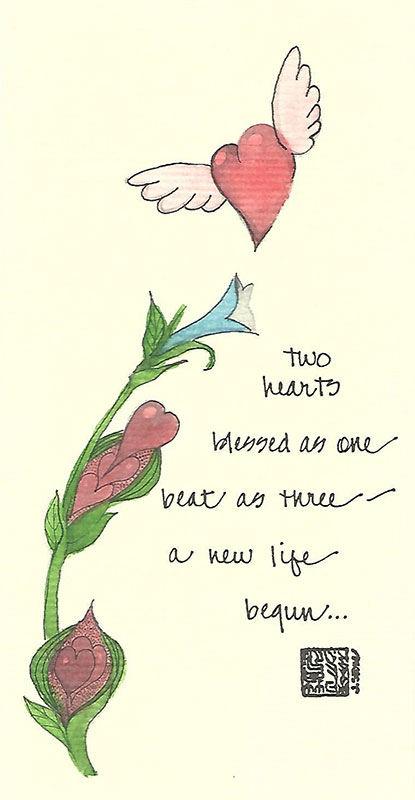 two
hearts
blessed as one
beat as three —
a new life
begun...